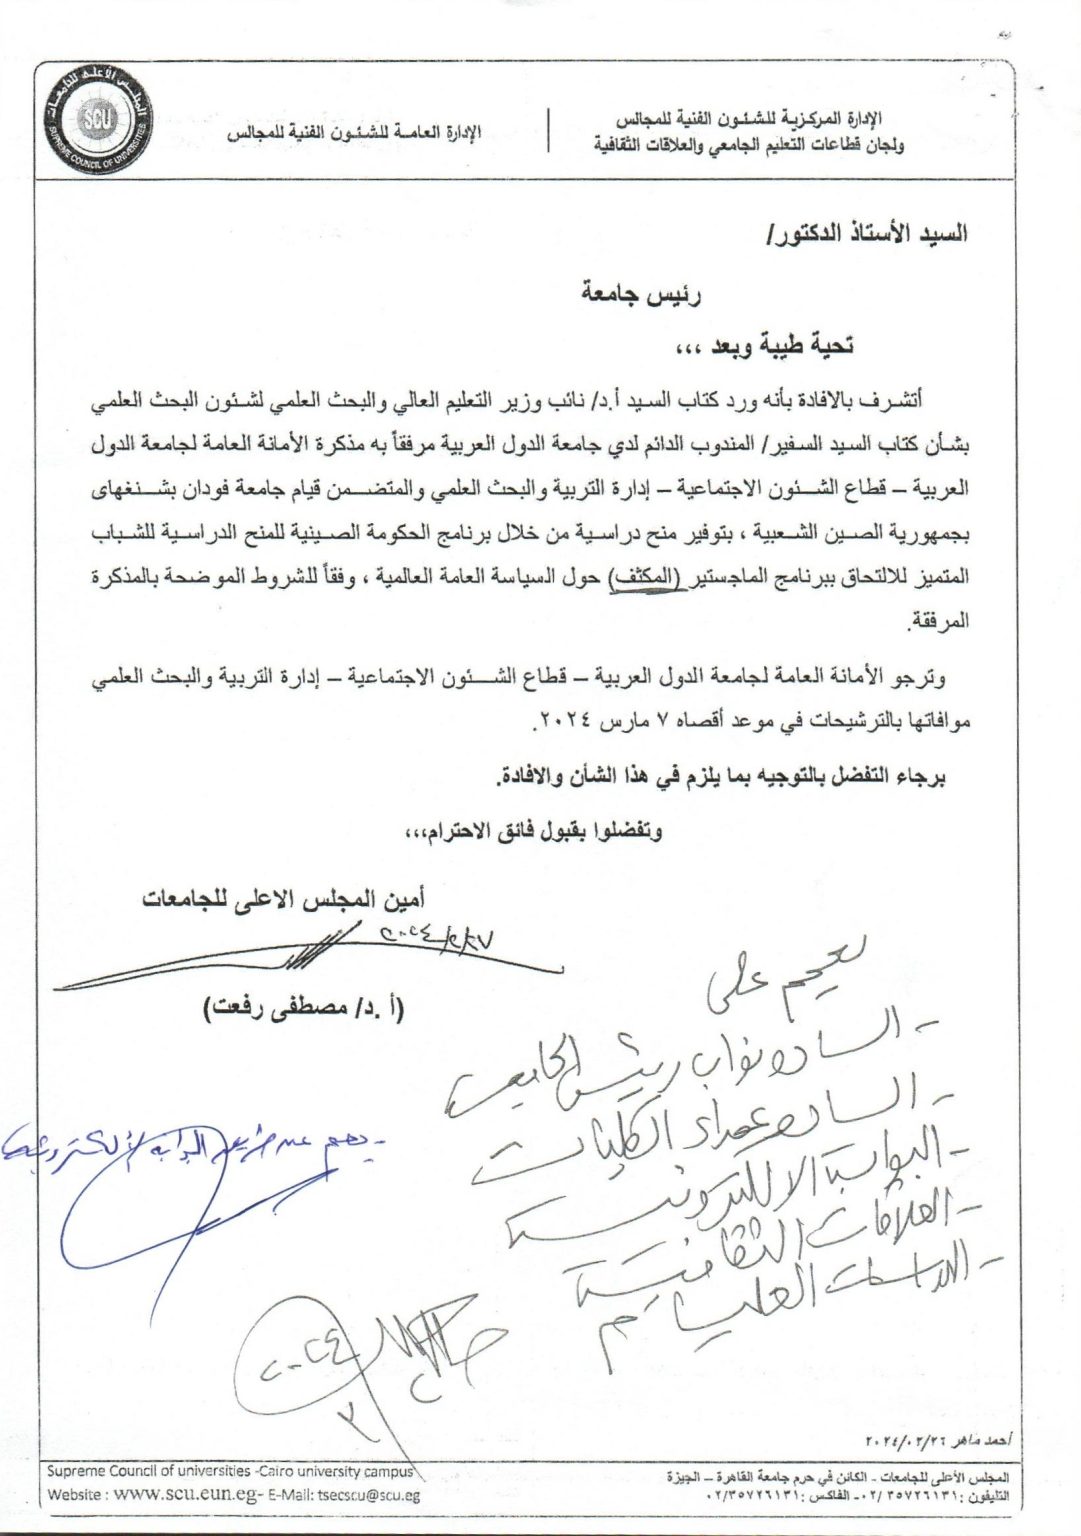 المجلس الأعلى للجامعات
SCU
SUPREME COUNCIL OF UNIVERSITIES
الإدارة المركزية للشئون الفنية للمجالس
ولجان قطاعات التعليم الجامعي والعلاقات الثقافية
الإدارة العامة للشئون الفنية للمجالس
السيد الأستاذ الدكتور/
رئيس جامعة
تحية طيبة وبعد ،،،
أتشرف بالافادة بأنه ورد كتاب السيد أ.د/ نائب وزير التعليم العالي والبحث العلمي لشئون البحث العلمي
بشأن كتاب السيد السفير/ المندوب الدائم لدي جامعة الدول العربية مرفقاً به مذكرة الأمانة العامة لجامعة الدول
العربية – قطاع الشئون الاجتماعية – إدارة التربية والبحث العلمي والمتضمن قيام جامعة فودان بشنغهاى
بجمهورية الصين الشعبية ، بتوفير منح دراسية من خلال برنامج الحكومة الصينية للمنح الدراسية للشباب
المتميز للالتحاق ببرنامج الماجستير (المكثف) حول السياسة العامة العالمية ، وفقاً للشروط الموضحة بالمذكرة
المرفقة.
وترجو الأمانة العامة لجامعة الدول العربية – قطاع الشئون الاجتماعية – إدارة التربية والبحث العلمي
موافاتها بالترشيحات في موعد أقصاه ٧ مارس ٢٠٢٤.
برجاء التفضل بالتوجيه بما يلزم في هذا الشأن والافادة.
وتفضلوا بقبول فائق الاحترام،،،
أمين المجلس الاعلى للجامعات
٢٠٢٤/٢/٢٧
(أ .د/ مصطفى رفعت)
يعمم على
- السادة نواب رئيس الجامعة
- السادة عمداء الكليات
- البوابة الالكترونية
- العلاقات الثقافية
- الدراسات العليا
- يعمم عن طريق البوابة الالكترونية
٢٠٢٤
أحمد ماهر ٢٠٢٤/٠٢/٢٦
Supreme Council of universities -Cairo university campus
Website : www.scu.eun.eg- E-Mail: tsecscu@scu.eg
المجلس الأعلى للجامعات - الكائن في حرم جامعة القاهرة – الجيزة
التليفون :٠٢/ ٣٥٧٢٦١٣١- الفاكس :٠٢/٣٥٧٢٦١٣١